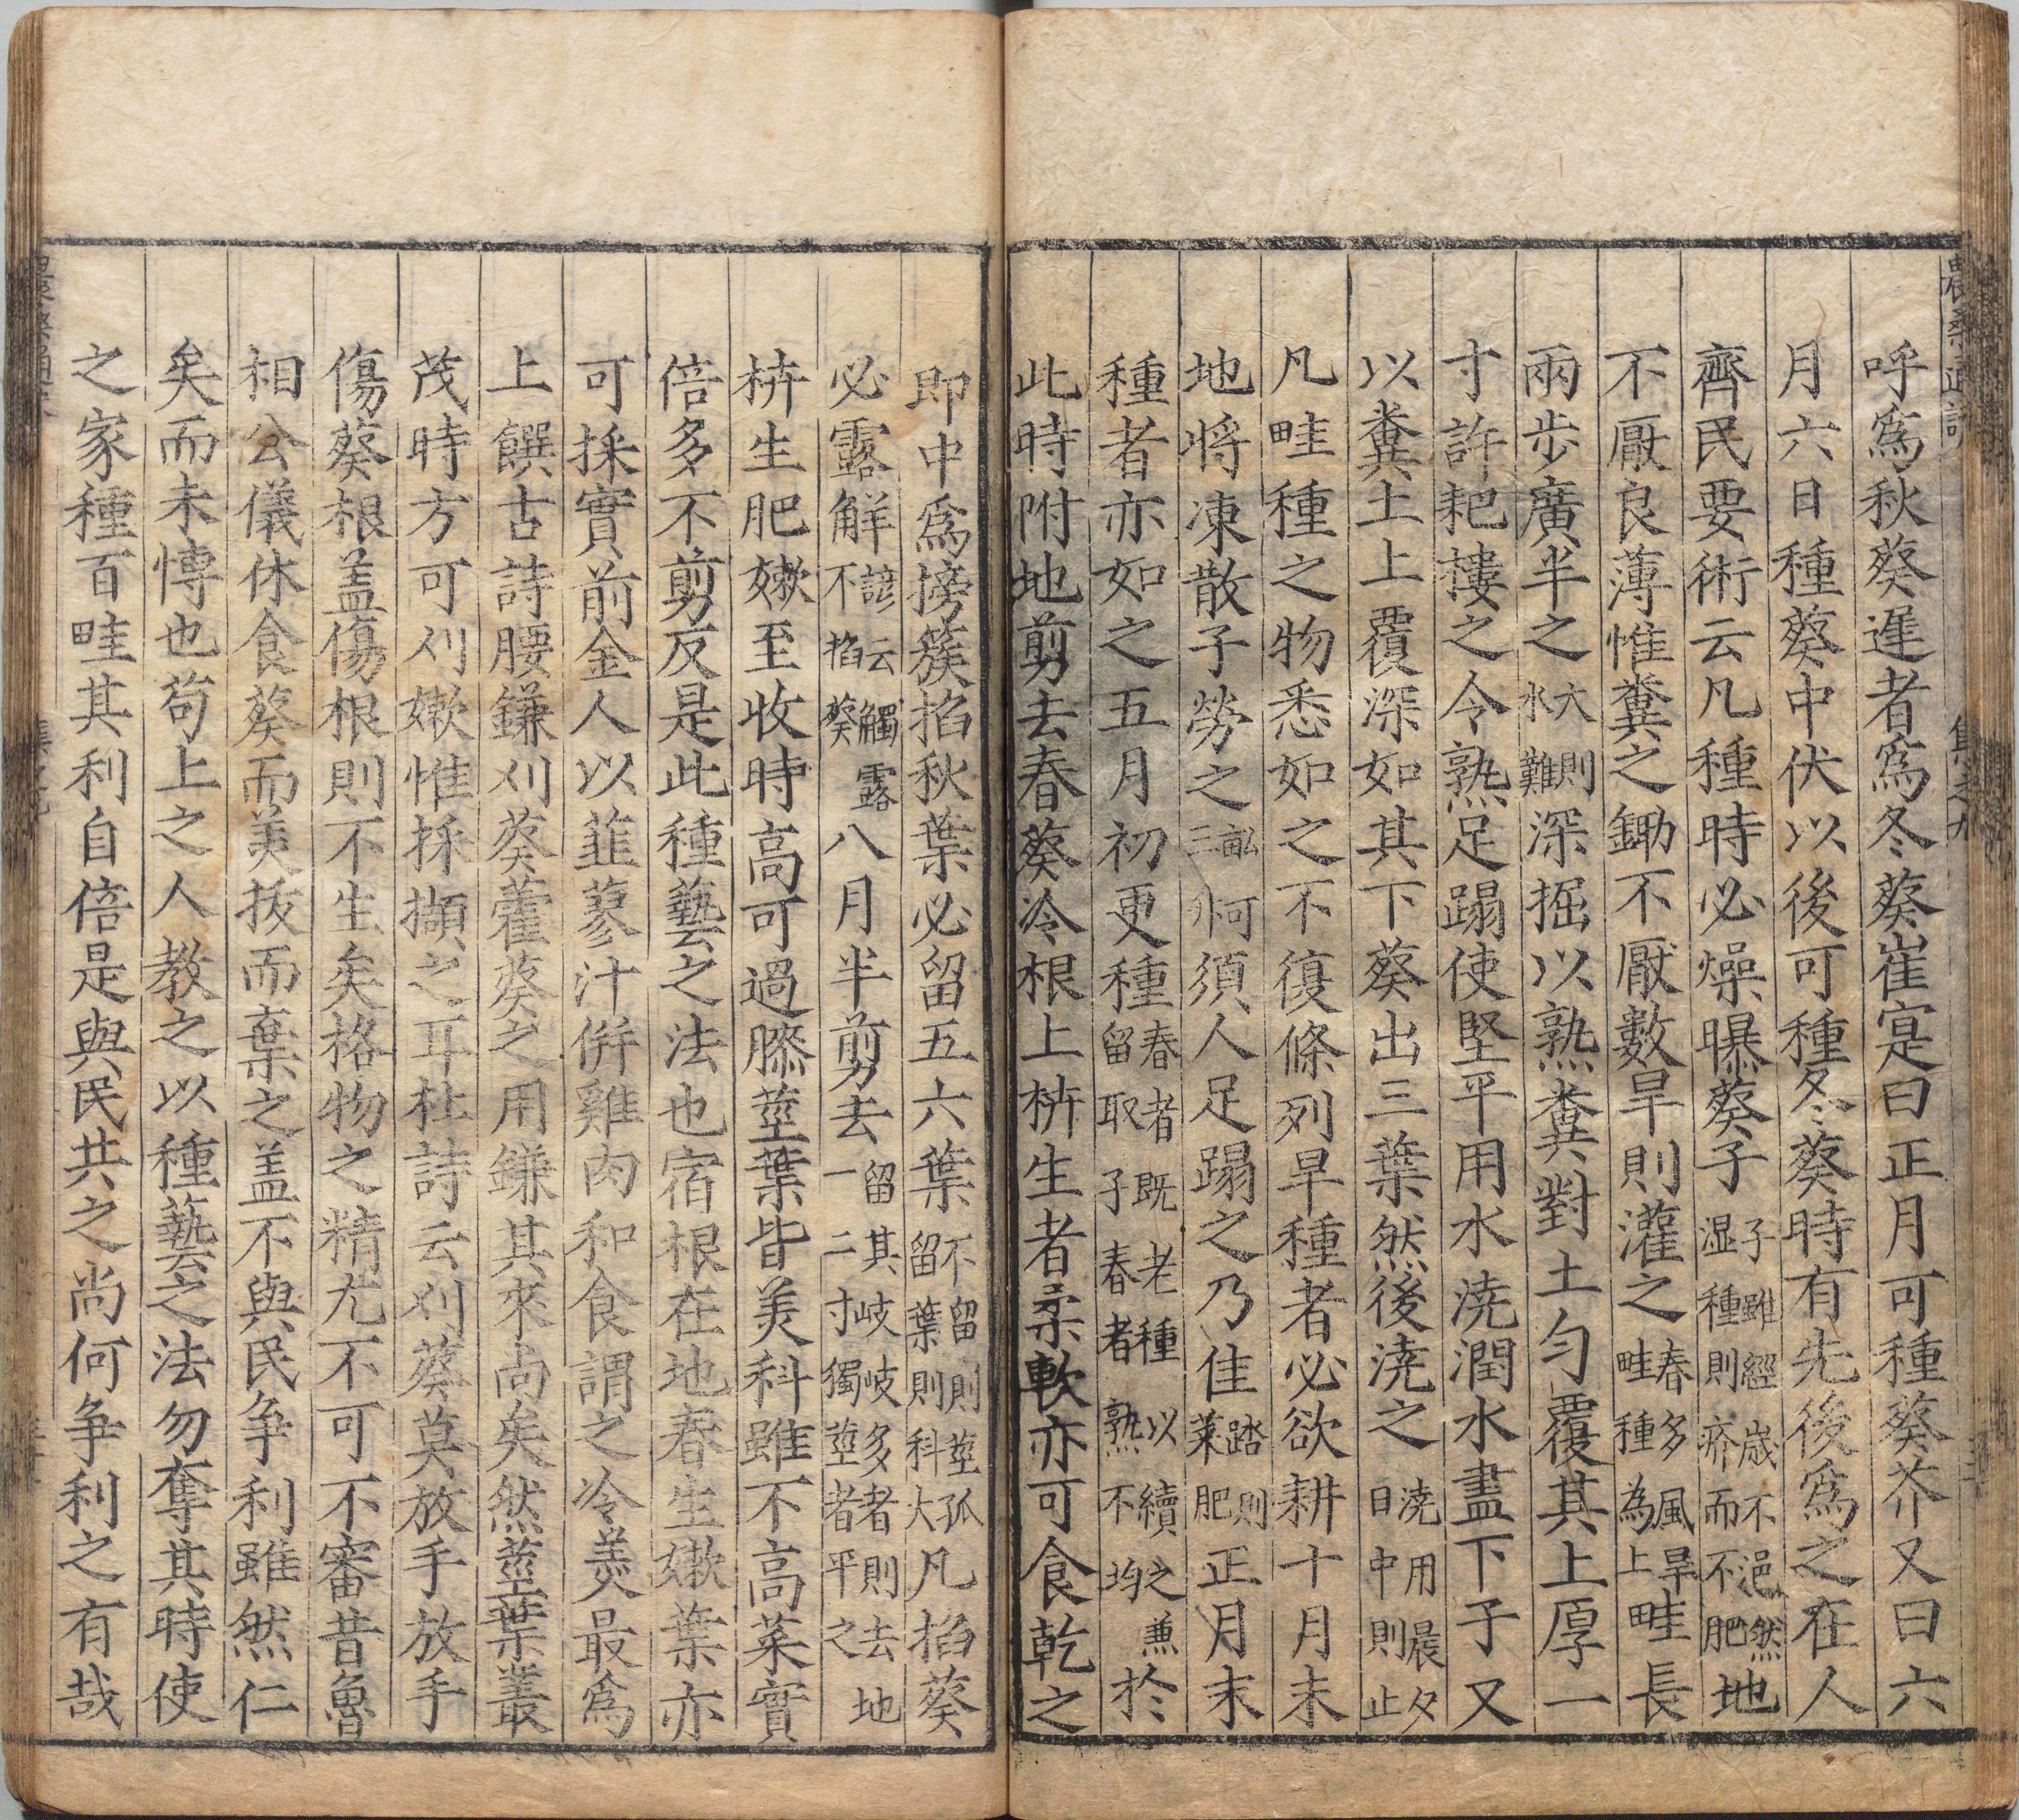 呼爲秋葵遲者爲冬葵崔寔曰正月可種葵芥又曰六
月六日種葵中伏以後可種冬葵時有先後爲之在人
齊民要術云凡種時必燥曝葵子子雖經歳不浥然湿種則疥而不肥地
不厭良薄惟糞之鋤不厭數旱則灌之春多風旱畦種為上畦長
兩步廣半之大則水難深掘以熟糞對土勻覆其上厚一
寸許耙摟之令熟足蹋使堅平用水澆潤水盡下子又
以糞土上覆深如其下葵出三葉然後澆之澆用晨夕日中則止
凡畦種之物悉如之不復條列早種者必欲耕十月末
地將凍散子勞之畝三升何須人足蹋之乃佳踏則菜肥正月末
種者亦如之五月初更種春者既老種以續之兼留取子春者熟不均於
此時附地剪去春葵冷根上枿生者柔軟亦可食乾之
即中爲搒簇掐秋葉必留五六葉不留則莖孤留葉則科大凡掐葵
必露解諺云觸露不掐葵八月半剪去留其岐岐多者則去地一二寸獨莖者平之
枿生肥嫩至收時高可過膝莖葉皆美科雖不高菜實
倍多不剪反是此種藝之法也宿根在地春生嫩葉亦
可採實前金人以韮蓼汁併雞肉和食謂之冷羹最爲
上饌古詩腰鎌刈葵藿葵之用鎌其來尚矣然莖葉叢
茂時方可刈嫩惟採擷之耳杜詩云刈葵莫放手放手
傷葵根盖傷根則不生矣格物之精尤不可不審昔魯
相公儀休食葵而美抜而棄之盖不與民争利雖然仁
矣而未慱也苟上之人教之以種藝之法勿奪其時使
之家種百畦其利自倍是與民共之尚何争利之有哉